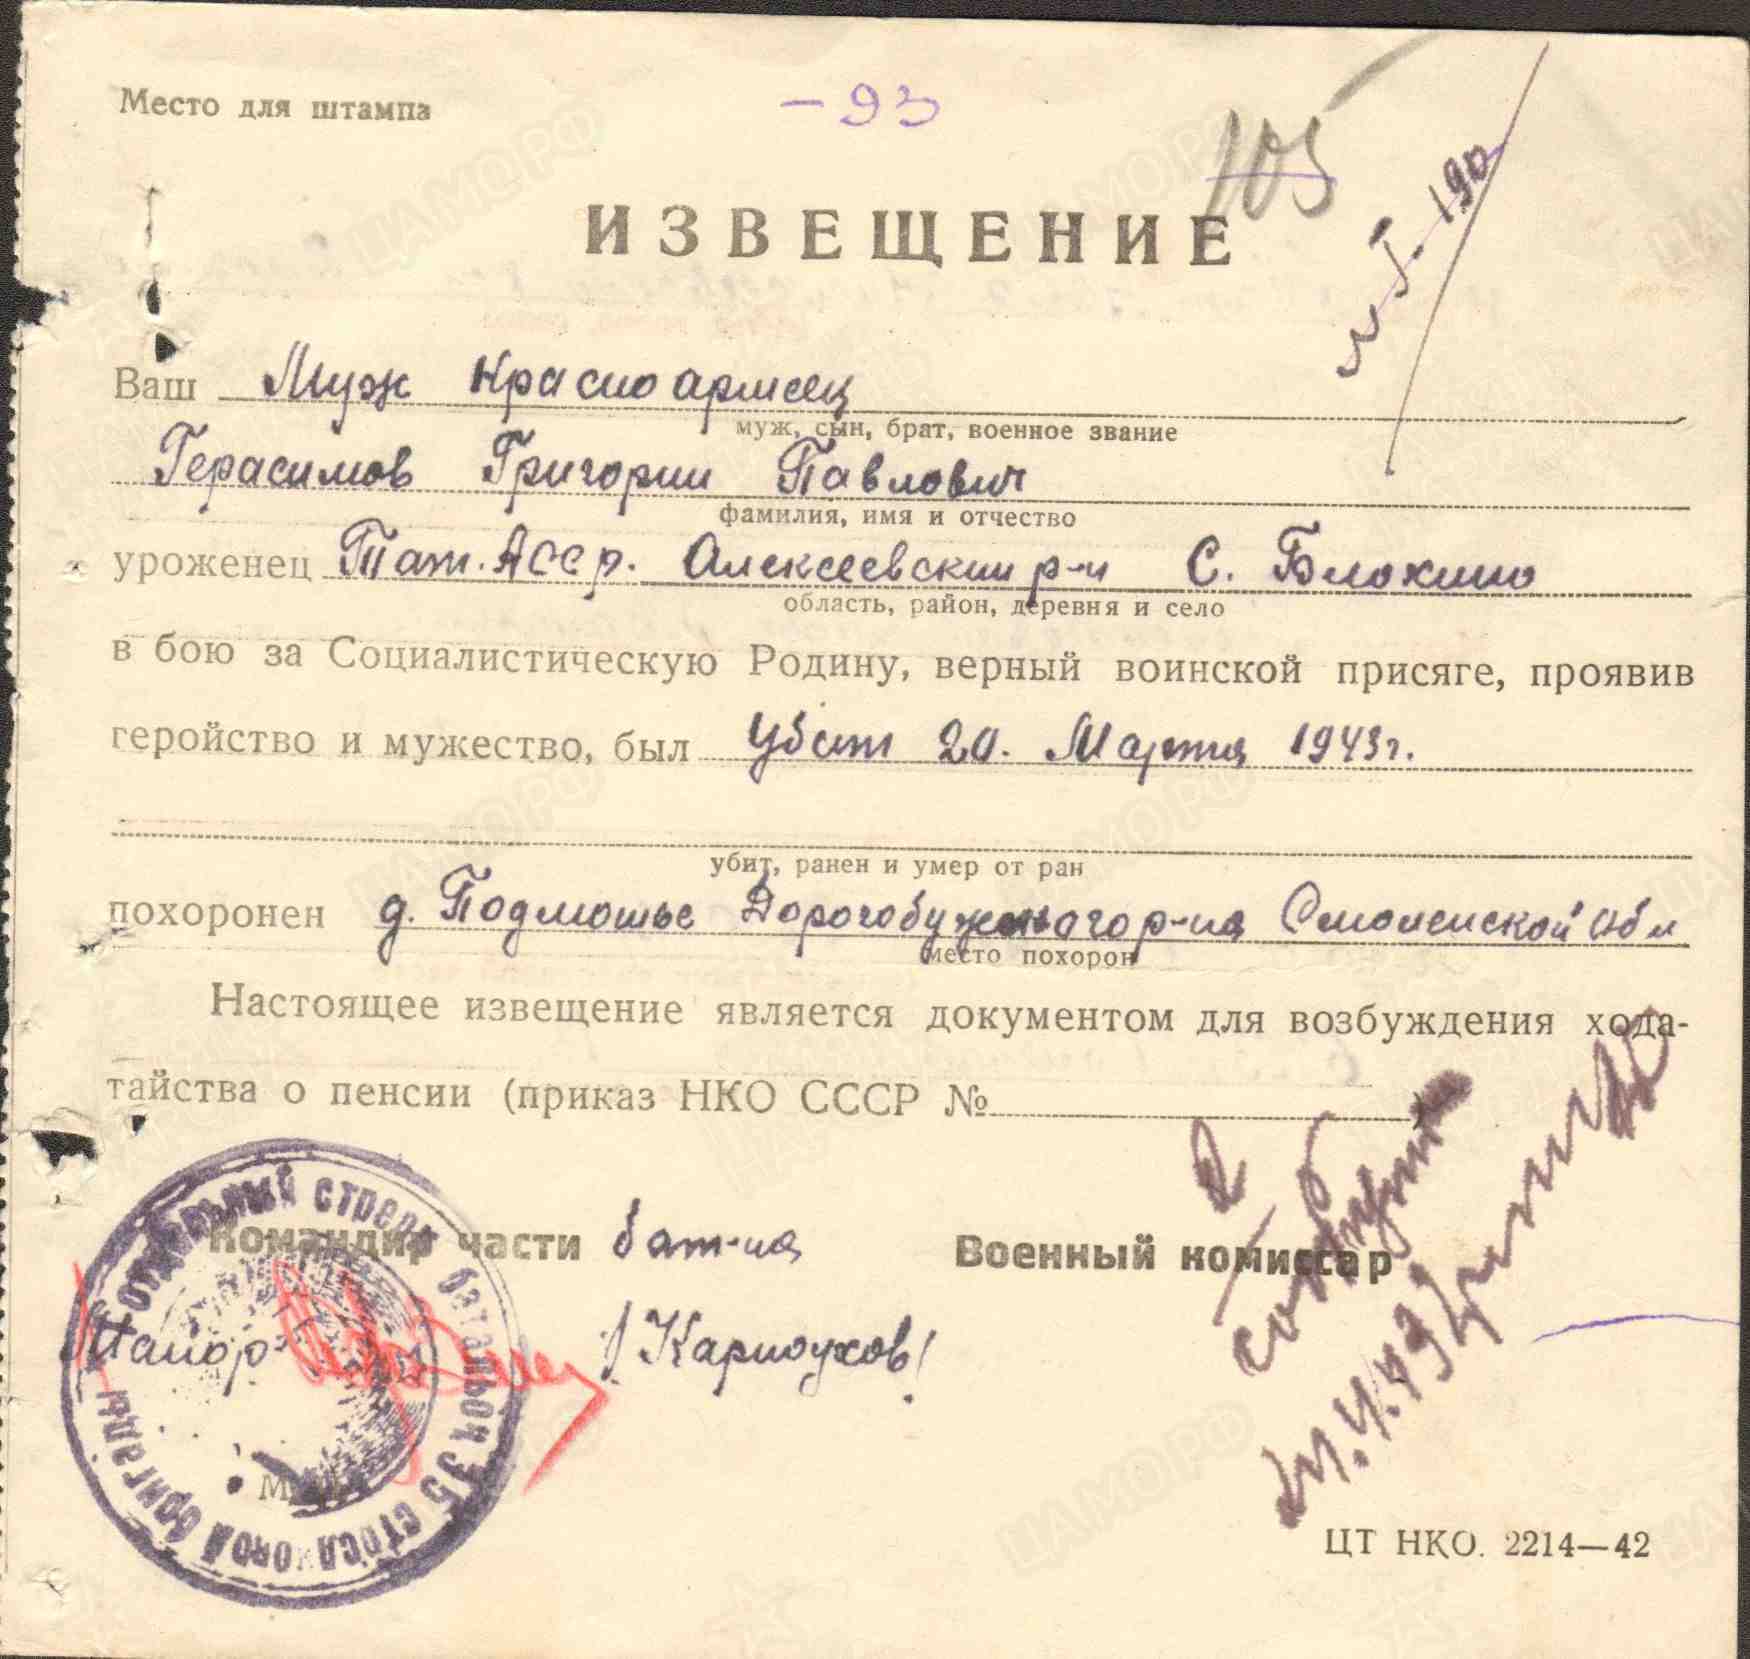 Место для штампа
- 93
105
ИЗВЕЩЕНИЕ
Ваш Муж Красноармеец
муж, сын, брат, военное звание
Герасимов Григории Павлович
фамилия, имя и отчество
уроженец Тат. АССР. Алексеевскии р-н С. Блохино
область, район, деревня и село
в бою за Социалистическую Родину, верный воинской присяге, проявив
геройство и мужество, был Убит 20. Марта 1943г.
убит, ранен и умер от ран
похоронен д. Подмошье Дорогобужского р-на Смоленской обл
место похорон
Настоящее извещение является документом для возбуждения хода-
тайства о пенсии (приказ НКО СССР №      )
Командир части бат-на Военный комиссар
Маиор /Карноухов/
отдельный стрелк батальон 35 стрелковой бригады
ЦТ НКО. 2214—42
ЦАМО.РФ